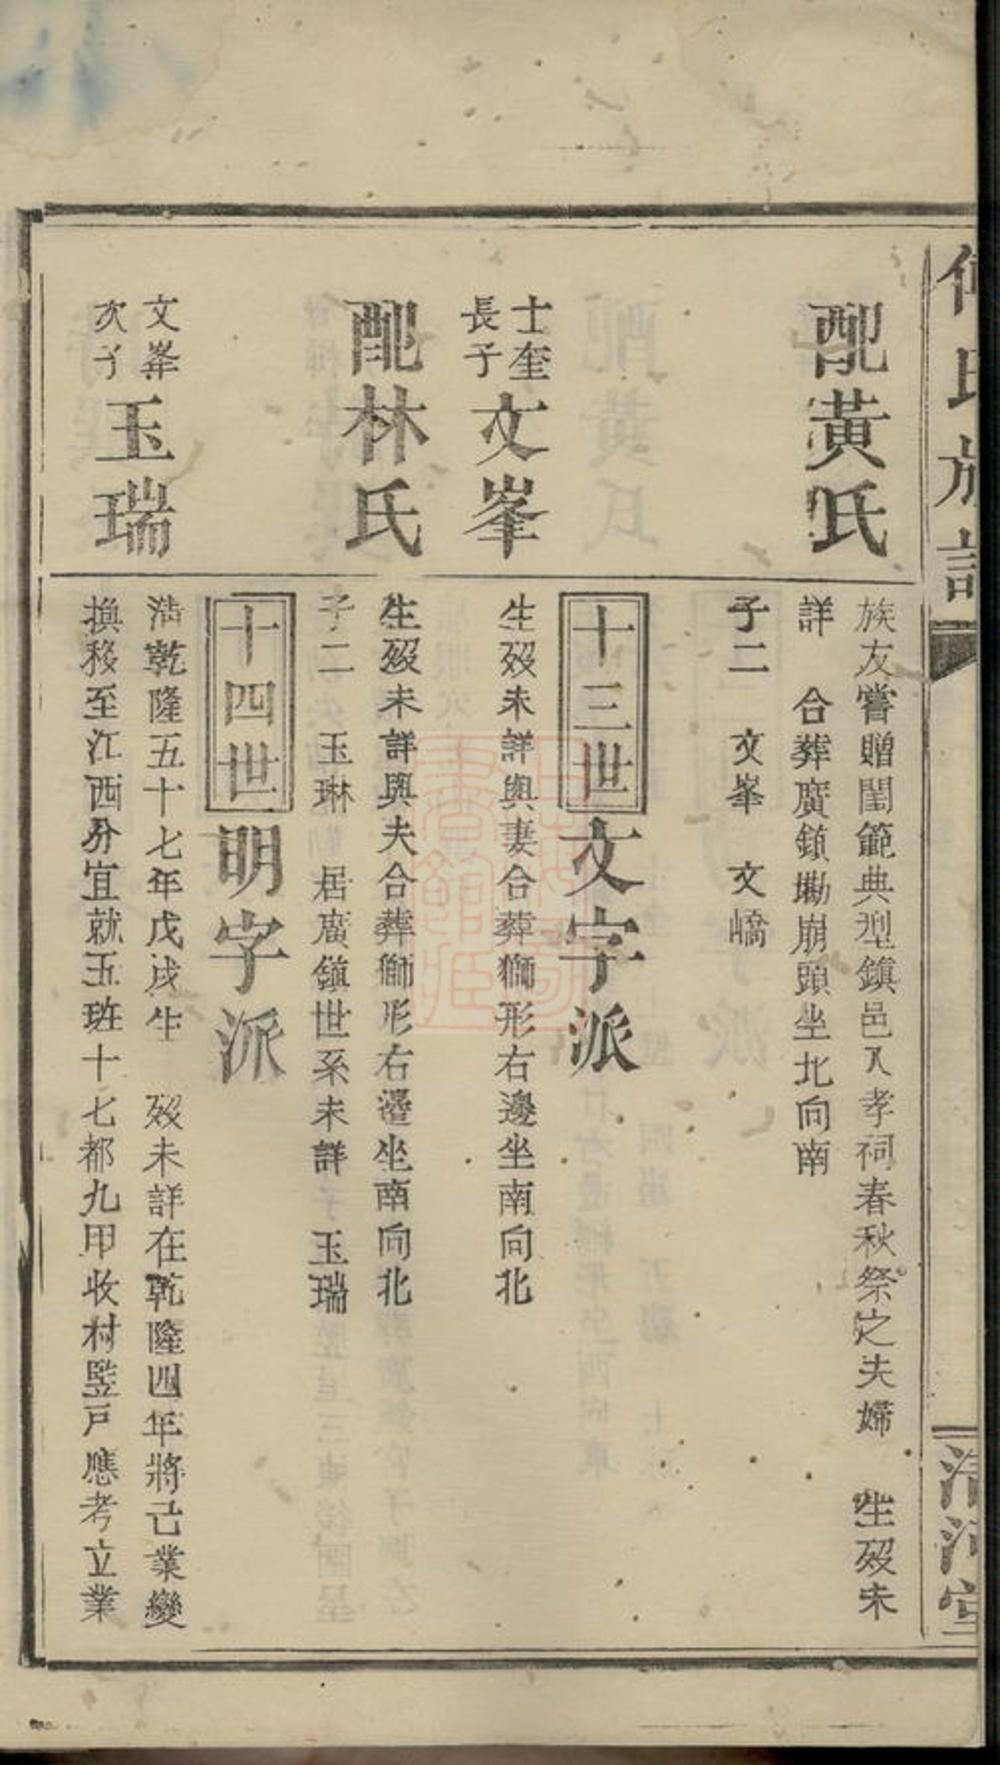 氏族譜
清河堂
配黃氏
族友嘗贈閨範典型鎮邑入孝祠春秋祭之夫婦 生歿未
詳 合葬廣鎮墈崩頭坐北向南
子二 文峯 文嶠
十三世 文字派
士奎長子 文峯
生歿未詳與妻合葬獅形右邊坐南向北
配林氏
生歿未詳與夫合葬獅形右邊坐南向北
子二 玉琳 居廣鎮世系未詳 玉瑞
十四世 明字派
文峯次子 玉瑞
清乾隆五十七年戊戌生 歿未詳在乾隆四年將己業變
換移至江西分宜就五班十七都九甲收村監戶應考立業